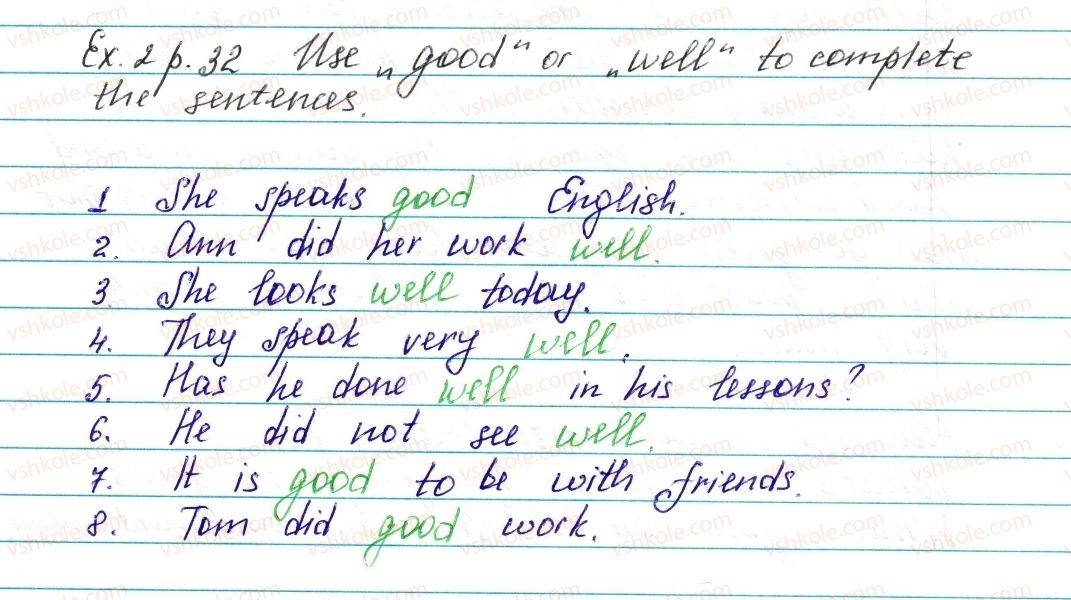 Ex. 2 p. 32 Use „good" or „well" to complete
the sentences.
1 She speaks good English.
2. Ann did her work well.
3. She looks well today.
4. They speak very well.
5. Has he done well in his lessons?
6. He did not see well.
7. It is good to be with friends.
8. Tom did good work.